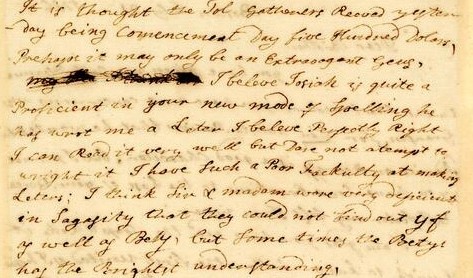 It is thought the Tol Gatherers Recevd yester-
day being Comencment Day five Hundred Dolars,
Prehaps it may only be an Extravagent Gess,
I beleve Josiah is quite a
Proficient in your new mode of Spelling he
has wrot me a Later I beleve Parfectly Right
I can Read it very well but Dare not atempt to
wright it I have Such a Poor Fackulty at making
Leters; I think Sir & madam ware very deficient
in Sagasity that they could not find out yf
as well as Bety, but Some times the Betys
has the Brightst understanding,